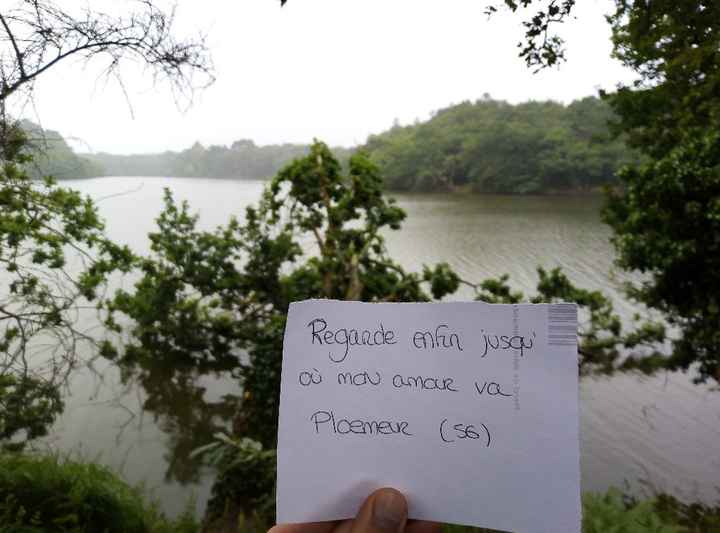 Regarde enfin jusqu'
où mon amour va
Ploemeur (56)